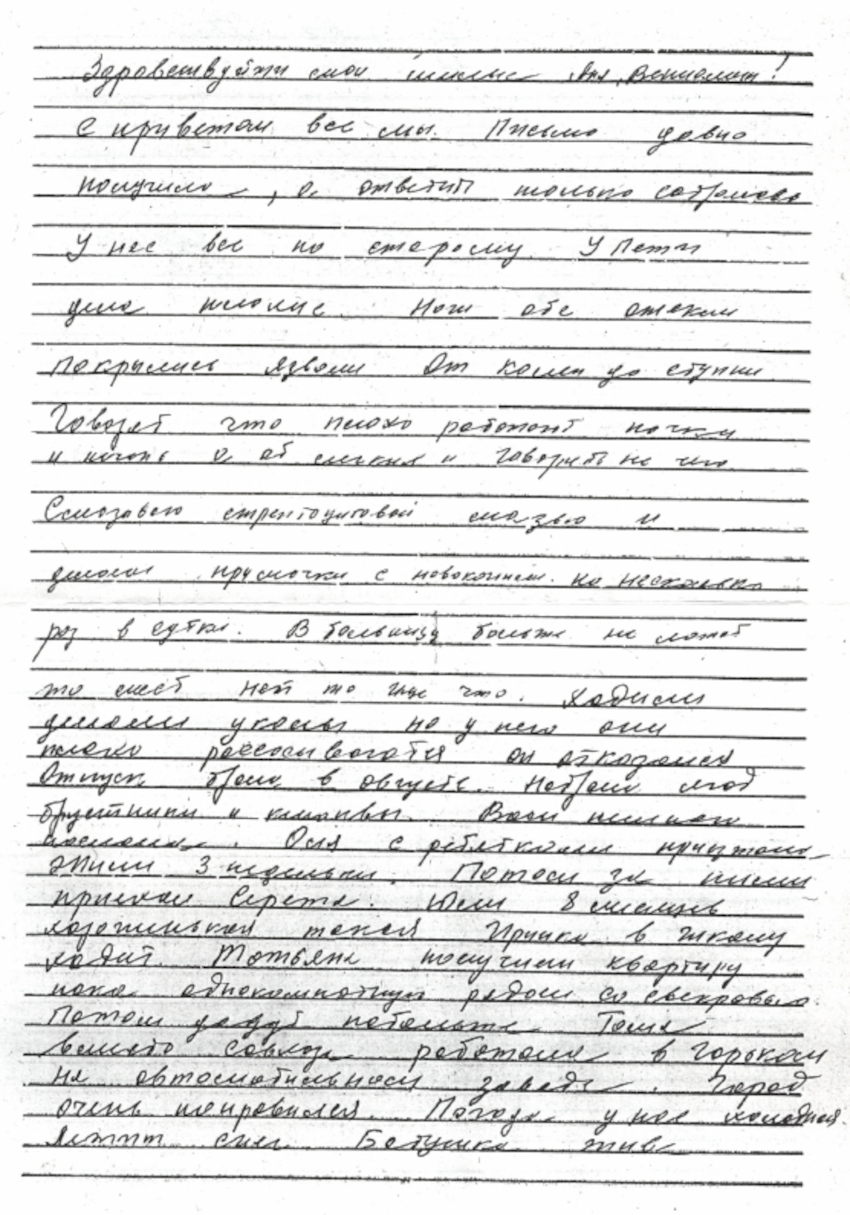 Здровствуйти мои милые Аня, Вениомин!
С приветом все мы. Письмо довно
получила, а ответит только собралась
У нас все по старому. У Пети
дела плохие Ноги обе отекли
покрылись язвами От колен до ступни
Говорят что плохо работают почки
и печень а об и говорить не чего
Смазываю стрептоцитовой мазью и
делаем примочки с новокоином по несколько
раз в сутки. В больницу больше не ложат
то мест нет то еще что. Ходили
делали уколы но у него они
плохо рассасываются он отказался
Отпуск брала в августе. Набрали ягод
брустники и клюквы. Вам немного
послали. Оля с ребятками приезжала
Жили 3 недельки. Потом за ними
приехал Сережа. Юли 8 месяцев
хорошинькая такая Иринка в школу
ходит. Татьяне получили квартиру
пока однокомнотную рядом со свекровью.
Потом дадут побольше. Таня
вместо совхоза работала в Горьком
на автомобильном заводе. Город
очень понравился. Погода у нас холодная.
Лежит снег. Бабушка жива